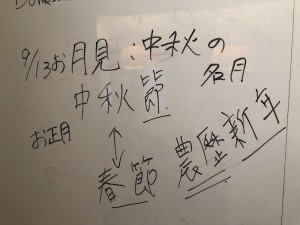 9/13お月見:中秋の
名月
中秋節
お正月
↕
春節 農歴新年